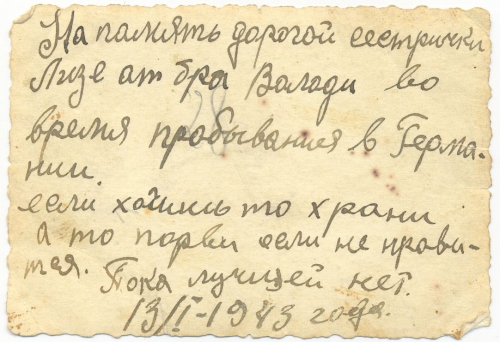 На память дорогой сестрички
Лизе ат бра Валади во
время пробывания в Герма-
нии.
если хочишь то храни
а то порви если не нрави-
тся. Пока лучшей нет.
13/I-1943 года.